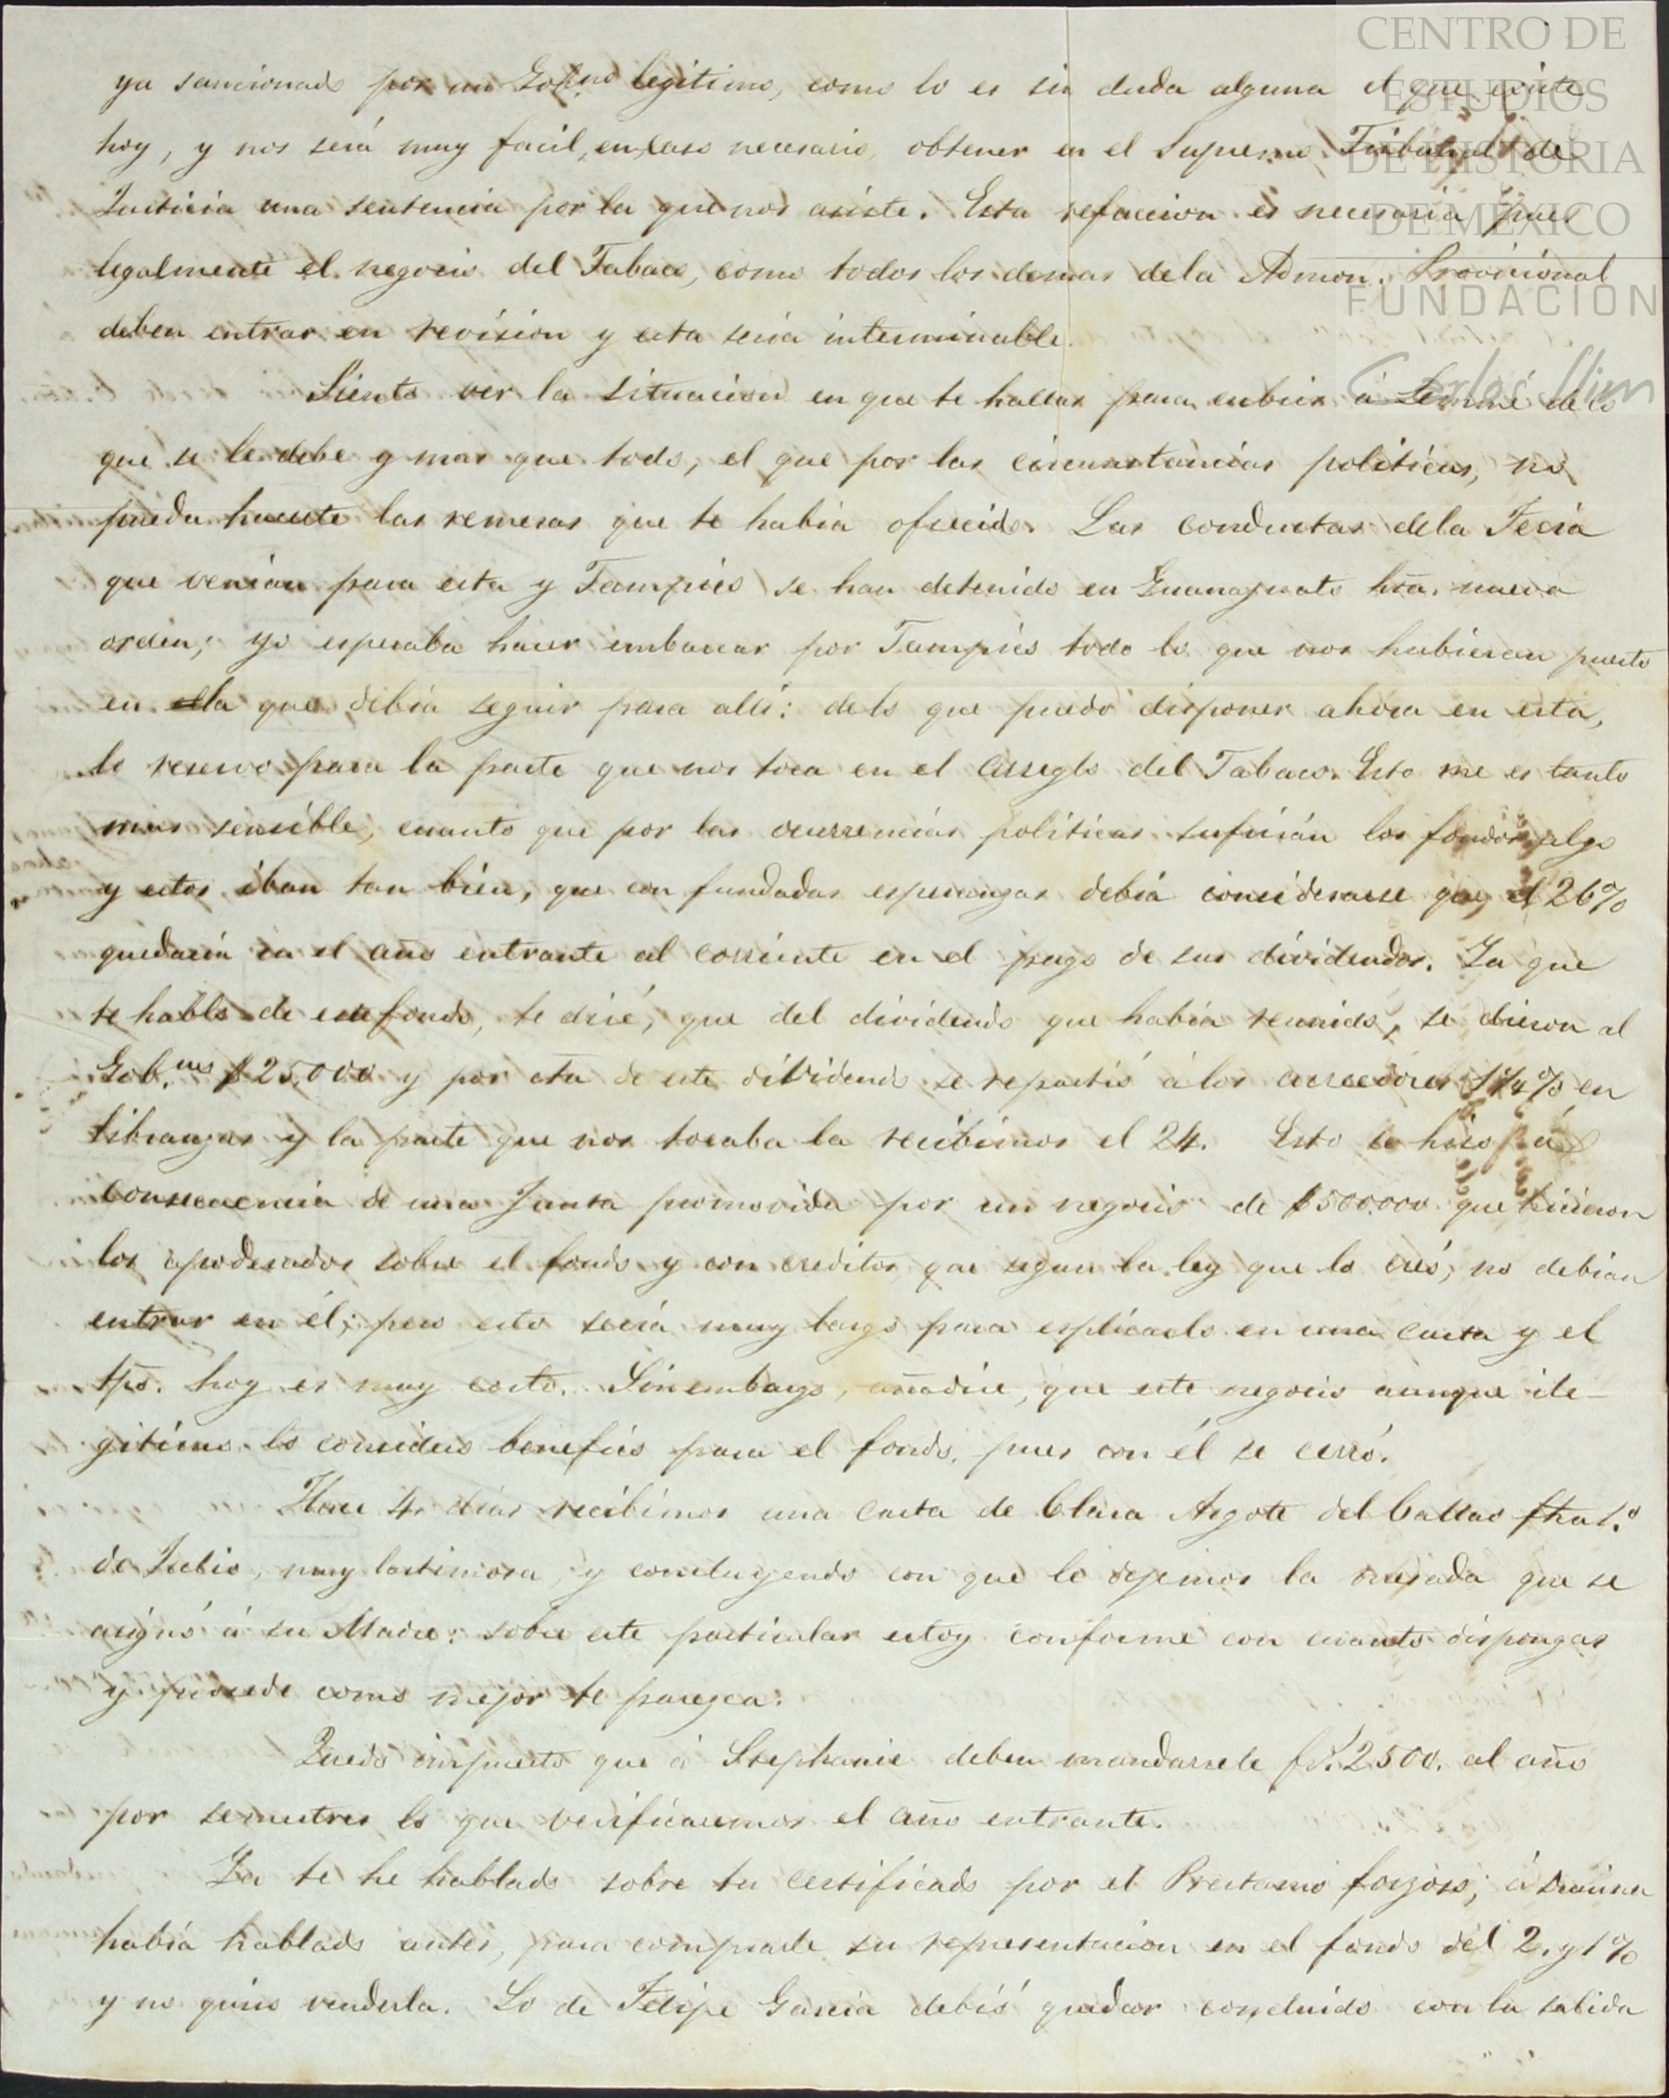 ya sancionado por un Gob.no legitimo, como lo es sin duda alguna el que existe
hoy, y nos será muy facil, en caso necesario, obtener en el Supremo Tribunal de
Justicia una sentencia por la que nos asiste. Esta refaccion es necesaria pues
legalmente el negocio del Tabaco, como todos los demas dela Admon. Provicional
deben entrar en revision y esta seria interminable.
Siento ver la situacion en que te hallas para cubrir á de lo
que se le debe y mas que todo, el que por las circunstancias politicas, no
pueda hacerte las remesas que te habia ofrecido. Las conductas dela Feria
que venian para esta y Tampico se han detenido en Guanajuato hta. nueva
orden; yo esperaba hacer embarcar por Tampico todo lo que nos hubieran puesto
en la que debia seguir para alli: delo que puedo disponer ahora en esta,
lo reservo para la parte que nos toca en el arreglo del Tabaco. Esto me es tanto
mas sensible, cuanto que por las ocurrencias politicas sufrirán los fondos algo
y estos iban tan bien, que con fundadas esperanzas debia considerarse que el 26%
quedaria en el año entrante al corriente en el pago de sus dividendos. Ya que
te hablo de este fondo, te diré, que del dividendo que habia reunido, se dieron al
Gob.no $25,000 y por cta de este dividendo se repartió á los acreedores 1¼% en
libranzas y la parte que nos tocaba la recibimos el 24. Esto se hizo á
consecuencia de una Junta promovida por un negocio de $500.000 que hicieron
los apoderados sobre el fondo y con creditos que segun la ley que lo creó, no debian
entrar en él; pero esto seria muy largo para esplicarlo en una carta y el
tpo. hoy es muy corto. Sinembargo, añadire, que este negocio aunque ile-
gitimo lo considero benefico para el fondo, pues con él se cerró.
Hace 4 dias recibimos una carta de Clara Argote del Callao fha 1.º
de Julio, muy lastimosa, y concluyendo con que le dejemos la mesada que se
asignó á su Madre: sobre este particular estoy conforme con cuanto dispongas
y procede como mejor te paresca.
Quedo impuesto que á Stephanie deben mandarsele 2500. al año
por semestres lo que verificaremos el año entrante.
Ya te he hablado sobre tu certificado por el Prestamo forzoso; á
habia hablado antes, para comprarle su representacion en el fondo del 2. y 1%
y no quiso venderla. Lo de Felipe Garcia debió quedar concluido con la salida
CENTRO DE
ESTUDIOS
DE HISTORIA
DE MÉXICO
FUNDACIÓN
Carlos Slim